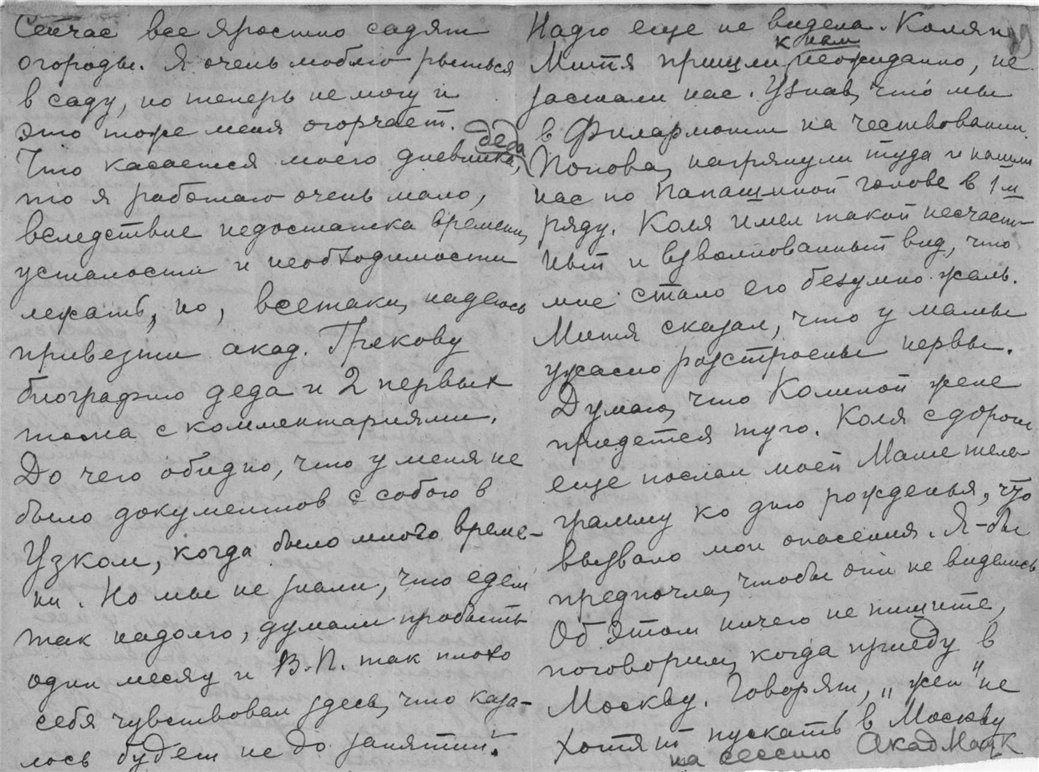 Сейчас все яростно садят
огороды. Я очень люблю рыться
в саду, но теперь не могу и
это тоже меня огорчает.
деда
Что касается моего дневника,
то я работаю очень мало,
вследствие недостатка времени,
усталости и необходимости
лежать, но, всетаки, надеюсь
привезти акад. Грекову
биографию деда и 2 первых
тома с комментариями.
До чего обидно, что у меня не
было документов с собою в
Узком, когда было много време-
ни. Но мы не знали, что едем
так надолго, думали пробыть
один месяц и В.П. так плохо
себя чувствовал здесь, что каза-
лось будет не до занятий.
Надю еще не видела. Коля и
к нам
Митя пришли неожиданно, не
застали нас. Узнав, что мы
в Филармонии на чествовании
Попова, нагрянули туда и нашли
нас по Папашиной голове в 1м
ряду. Коля имел такой несчаст-
ный и взволнованный вид, что
мне стало его безумно жаль.
Митя сказал, что у мамы
ужасно расстроены нервы.
Думаю, что Колиной жене
придется туго. Коля с дороги
еще послал моей Маше теле-
грамму ко дню рожденья, что
вызвало мои опасения. Я-бы
предпочла, чтобы они не виделись
Об этом ничего не пишите,
поговорим, когда приеду в
Москву. Говорят, "жен" не
хотят пускать в Москву
на сессию Акад Наук